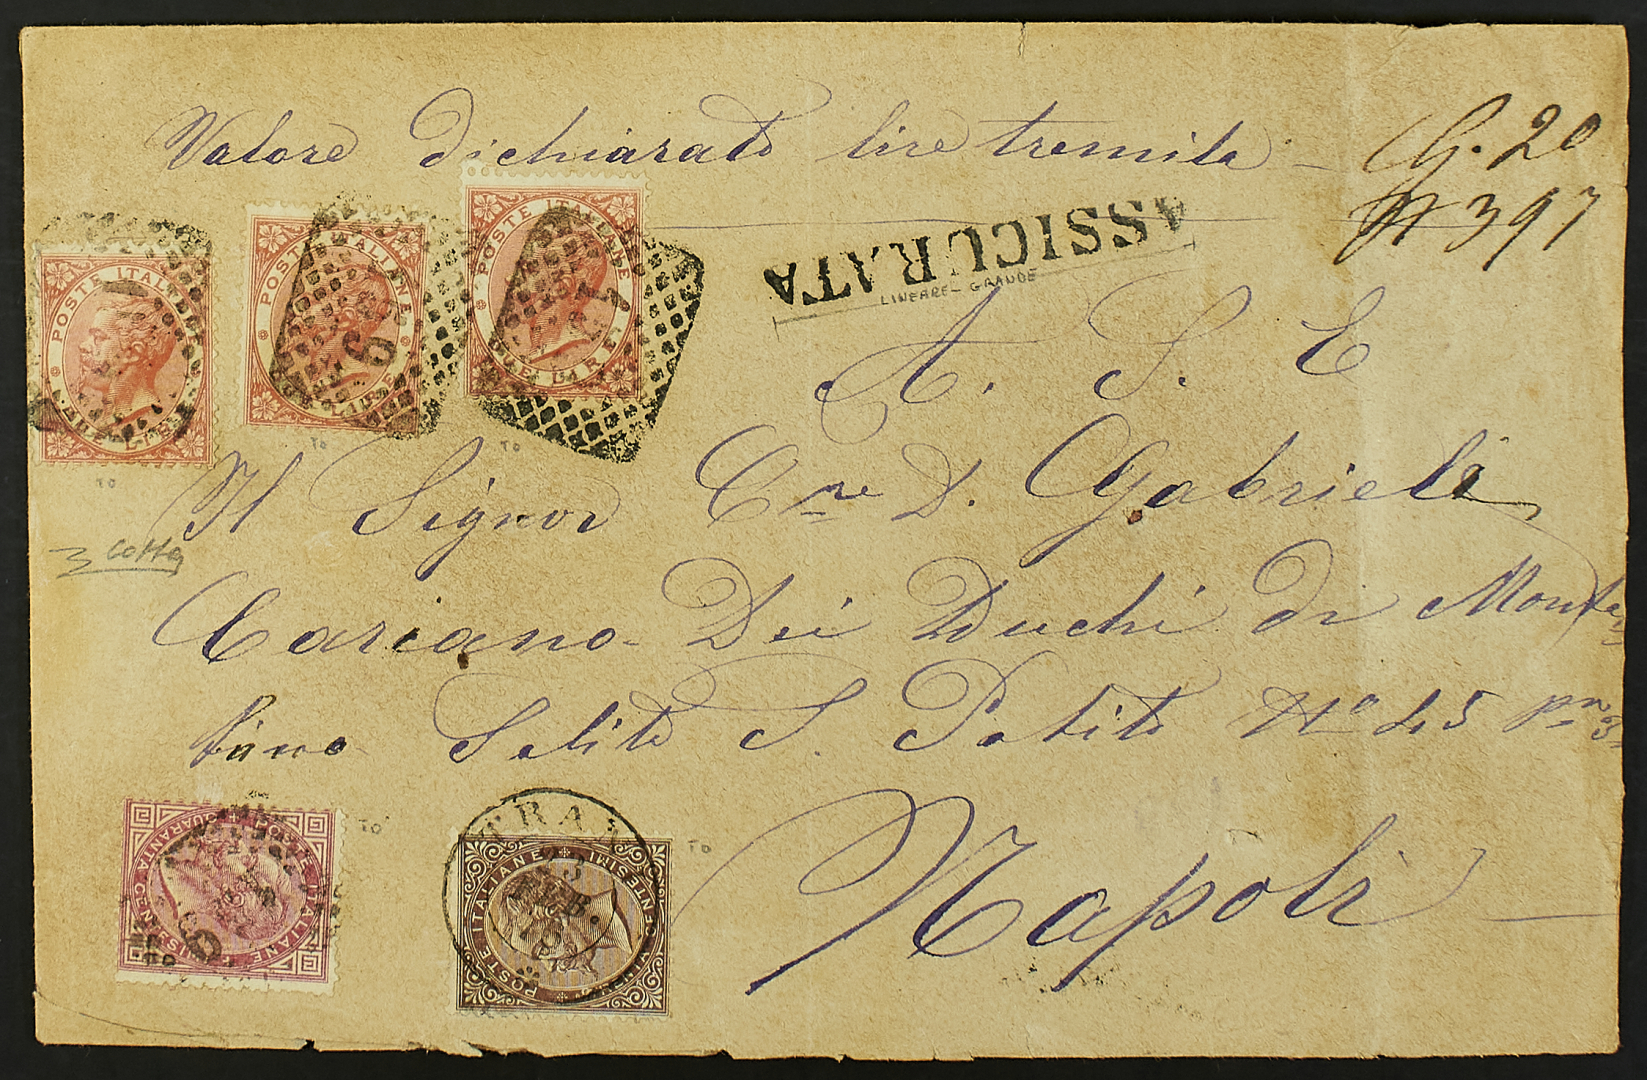 Valore Dichiarato lire tremila
G. 20
N 397
ASSICURATA
LINEARE - GRANDE
A. S. E
Il Signor C.re D. Gabriele
Cariano Dei Duchi di Monta
bino Salita S. Potito No 45 pno 3
Napoli
POSTE ITALIANE
DUE LIRE
POSTE ITALIANE
LIRE
POSTE ITALIANE
DUE LIRE
TO
TO
TO
TO
TO
POSTE ITALIANE
QUARANTA CENTESIMI
POSTE ITALIANE
CENTESIMI VENTI
TRANI
23
FEB.